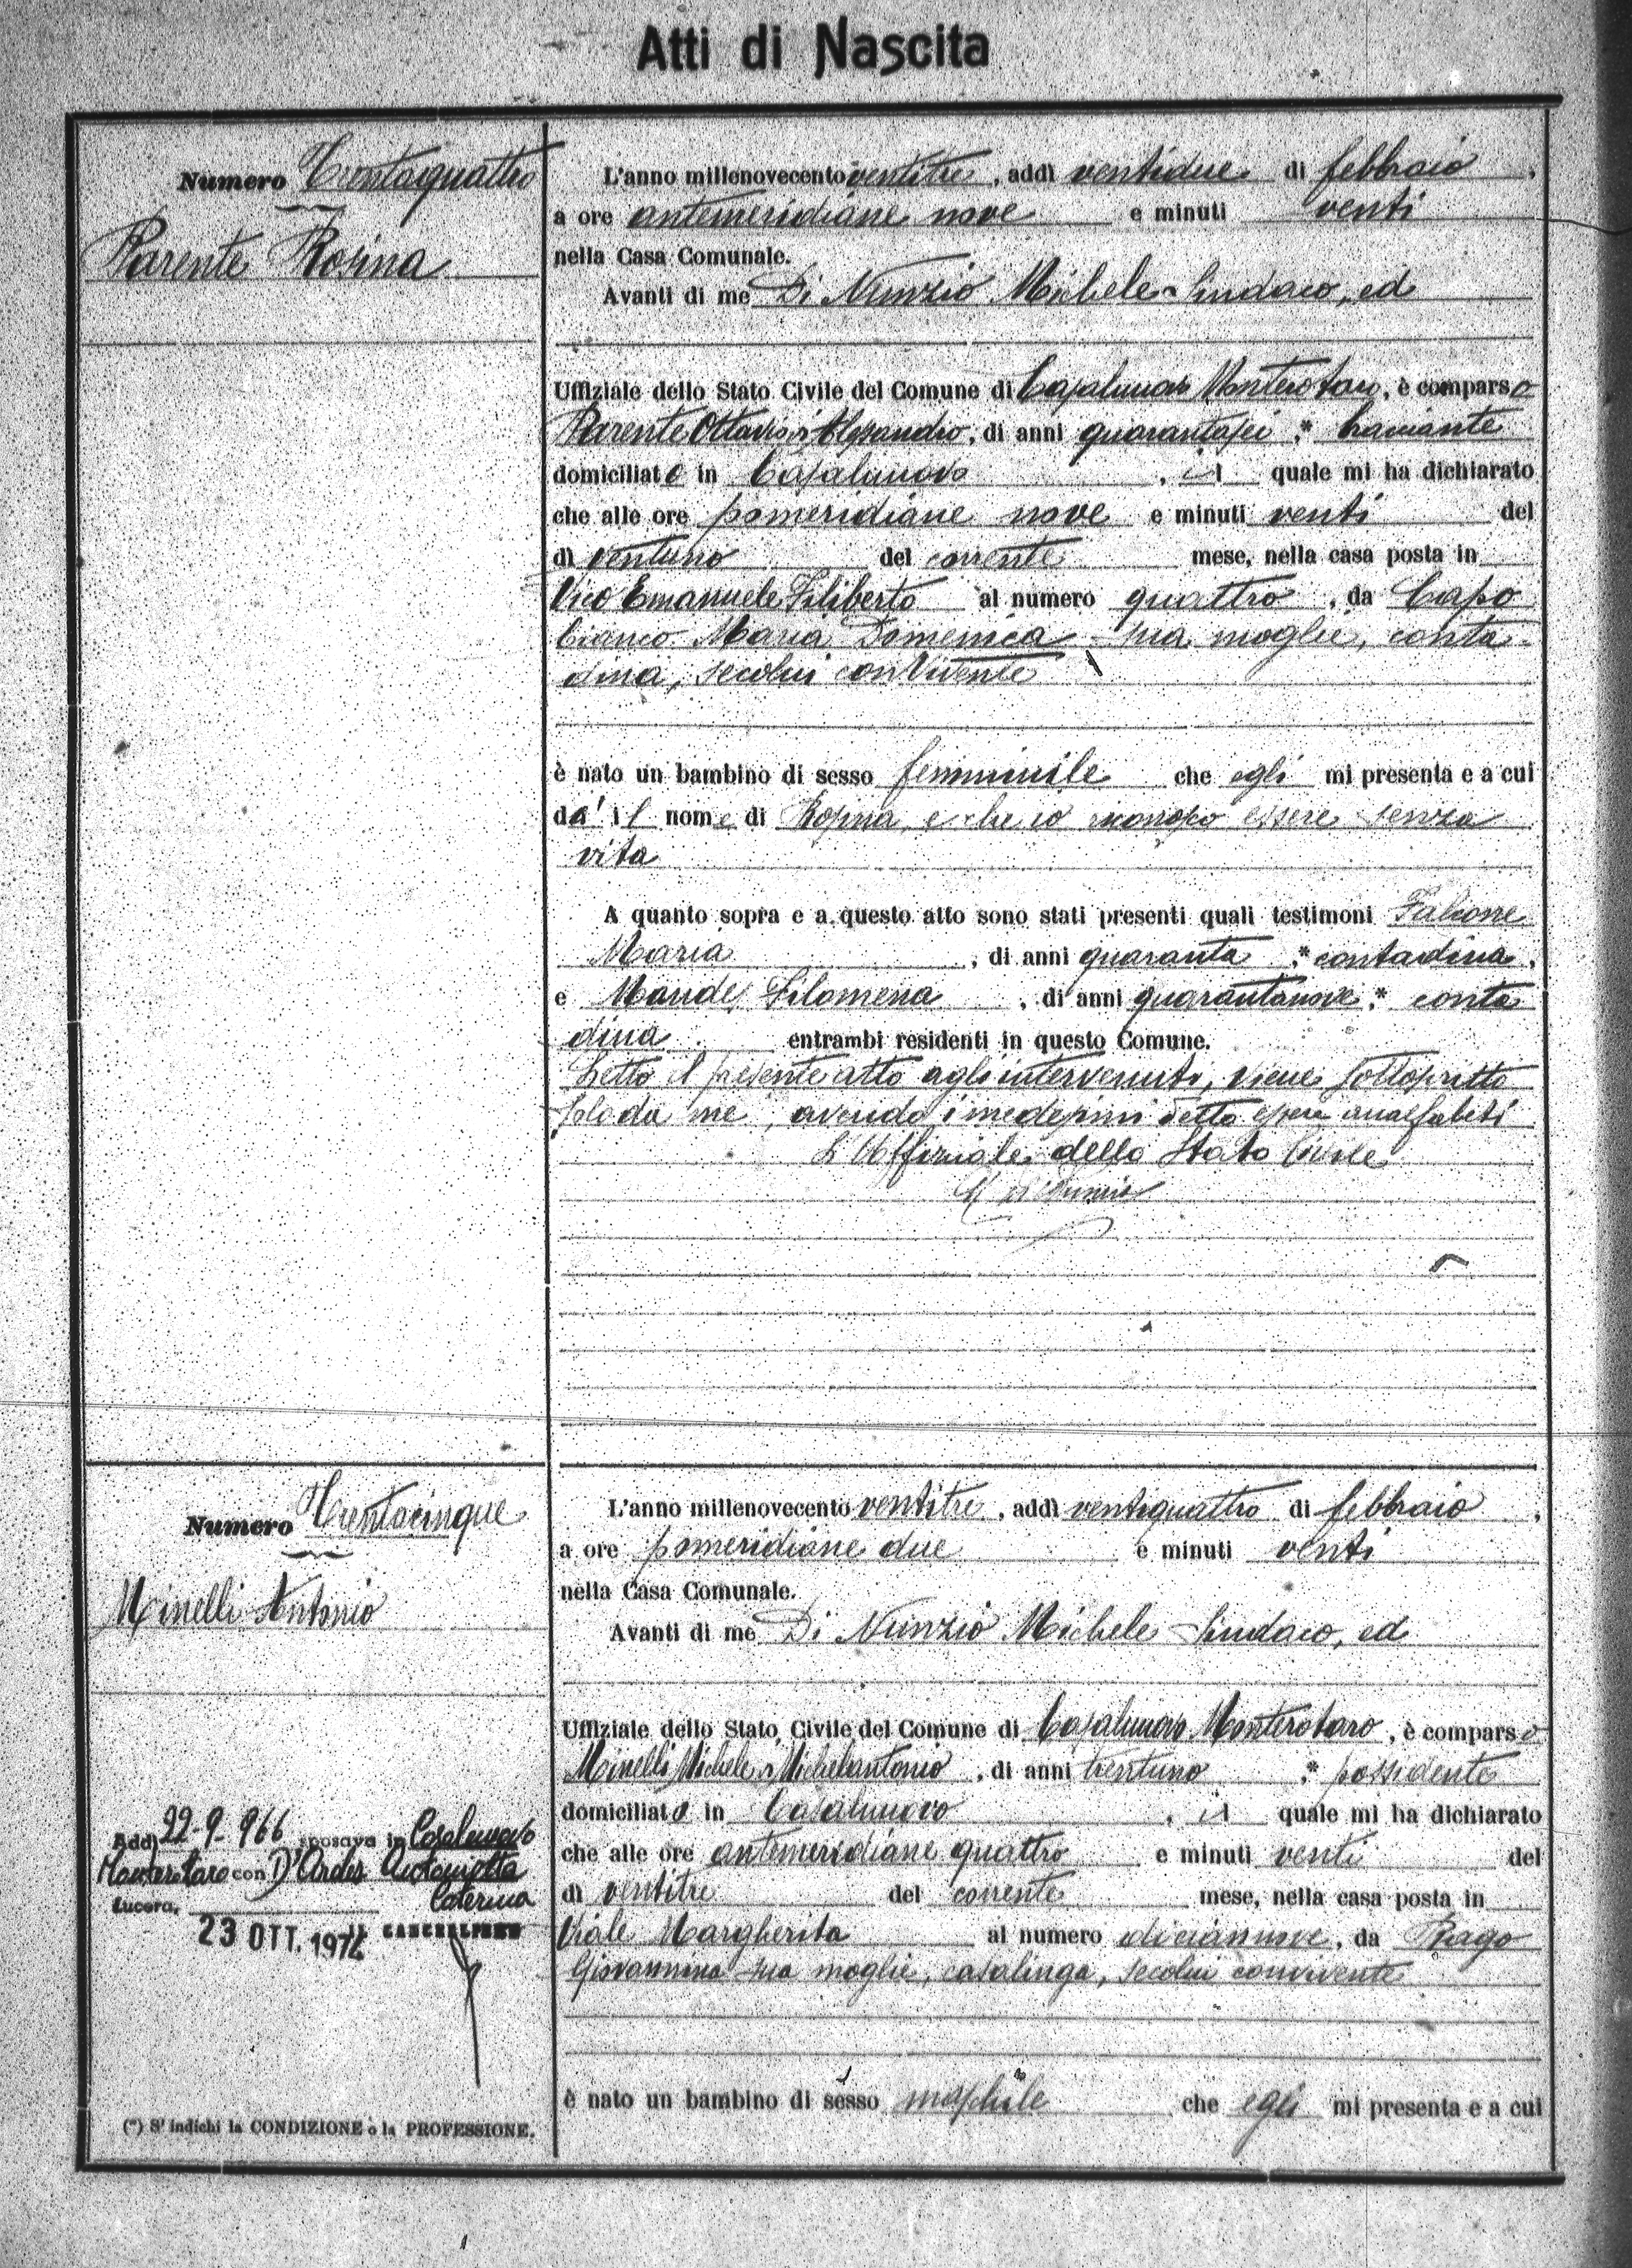 Atti di Nascita
Numero Trentaquattro
Parente Rosina
L'anno millenovecento ventitre, addì ventidue di febbraio,
a ore antemeridiane nove e minuti venti
nella Casa Comunale.
Avanti di me Di Nunzio Michele Sindaco, ed
Uffiziale dello Stato Civile del Comune di Casalnuovo Monterotaro, è comparso
Parente Ottavio di Alessandro, di anni quarantasei,* bracciante
domiciliato in Casalnuovo, il quale mi ha dichiarato
che alle ore pomeridiane nove e minuti venti del
dì ventuno del corrente mese, nella casa posta in
Vico Emanuele Filiberto al numero quattro, da Capo
bianco Maria Domenica sua moglie, conta-
dina, secolui convivente
è nato un bambino di sesso femminile che egli mi presenta e a cui
dà il nome di Rosina, e che io riconosco essere senza
vita
A quanto sopra e a questo atto sono stati presenti quali testimoni Falcone
Maria, di anni quaranta,* contadina,
e Filomena, di anni quarantanove,* conta
dina entrambi residenti in questo Comune.
Letto il presente atto agli intervenuti, viene sottoscritto
solo da me, avendo i medesimi detto essere analfabeti
L'Uffiziale dello Stato Civile
M Di Nunzio
Numero Trentacinque
Minelli Antonio
L'anno millenovecento ventitre, addì ventiquattro di febbraio,
a ore pomeridiane due e minuti venti
nella Casa Comunale.
Avanti di me Di Nunzio Michele Sindaco, ed
Uffiziale dello Stato Civile del Comune di Casalnuovo Monterotaro, è comparso
Minelli Michele di Michelantonio, di anni trentuno,* possidente
domiciliato in Casalnuovo, il quale mi ha dichiarato
che alle ore antemeridiane quattro e minuti venti del
dì ventitre del corrente mese, nella casa posta in
Viale Margherita al numero diciannove, da Rago
Giovannina sua moglie, casalinga, secolui convivente
è nato un bambino di sesso maschile che egli mi presenta e a cui
Addì 22-9-966 sposava in Casalnuovo
Monterotaro con D'Ardes Antonietta
Caterina
Lucera,
23 OTT. 1974 CANCELLIERE
(*) S'indichi la CONDIZIONE o la PROFESSIONE.